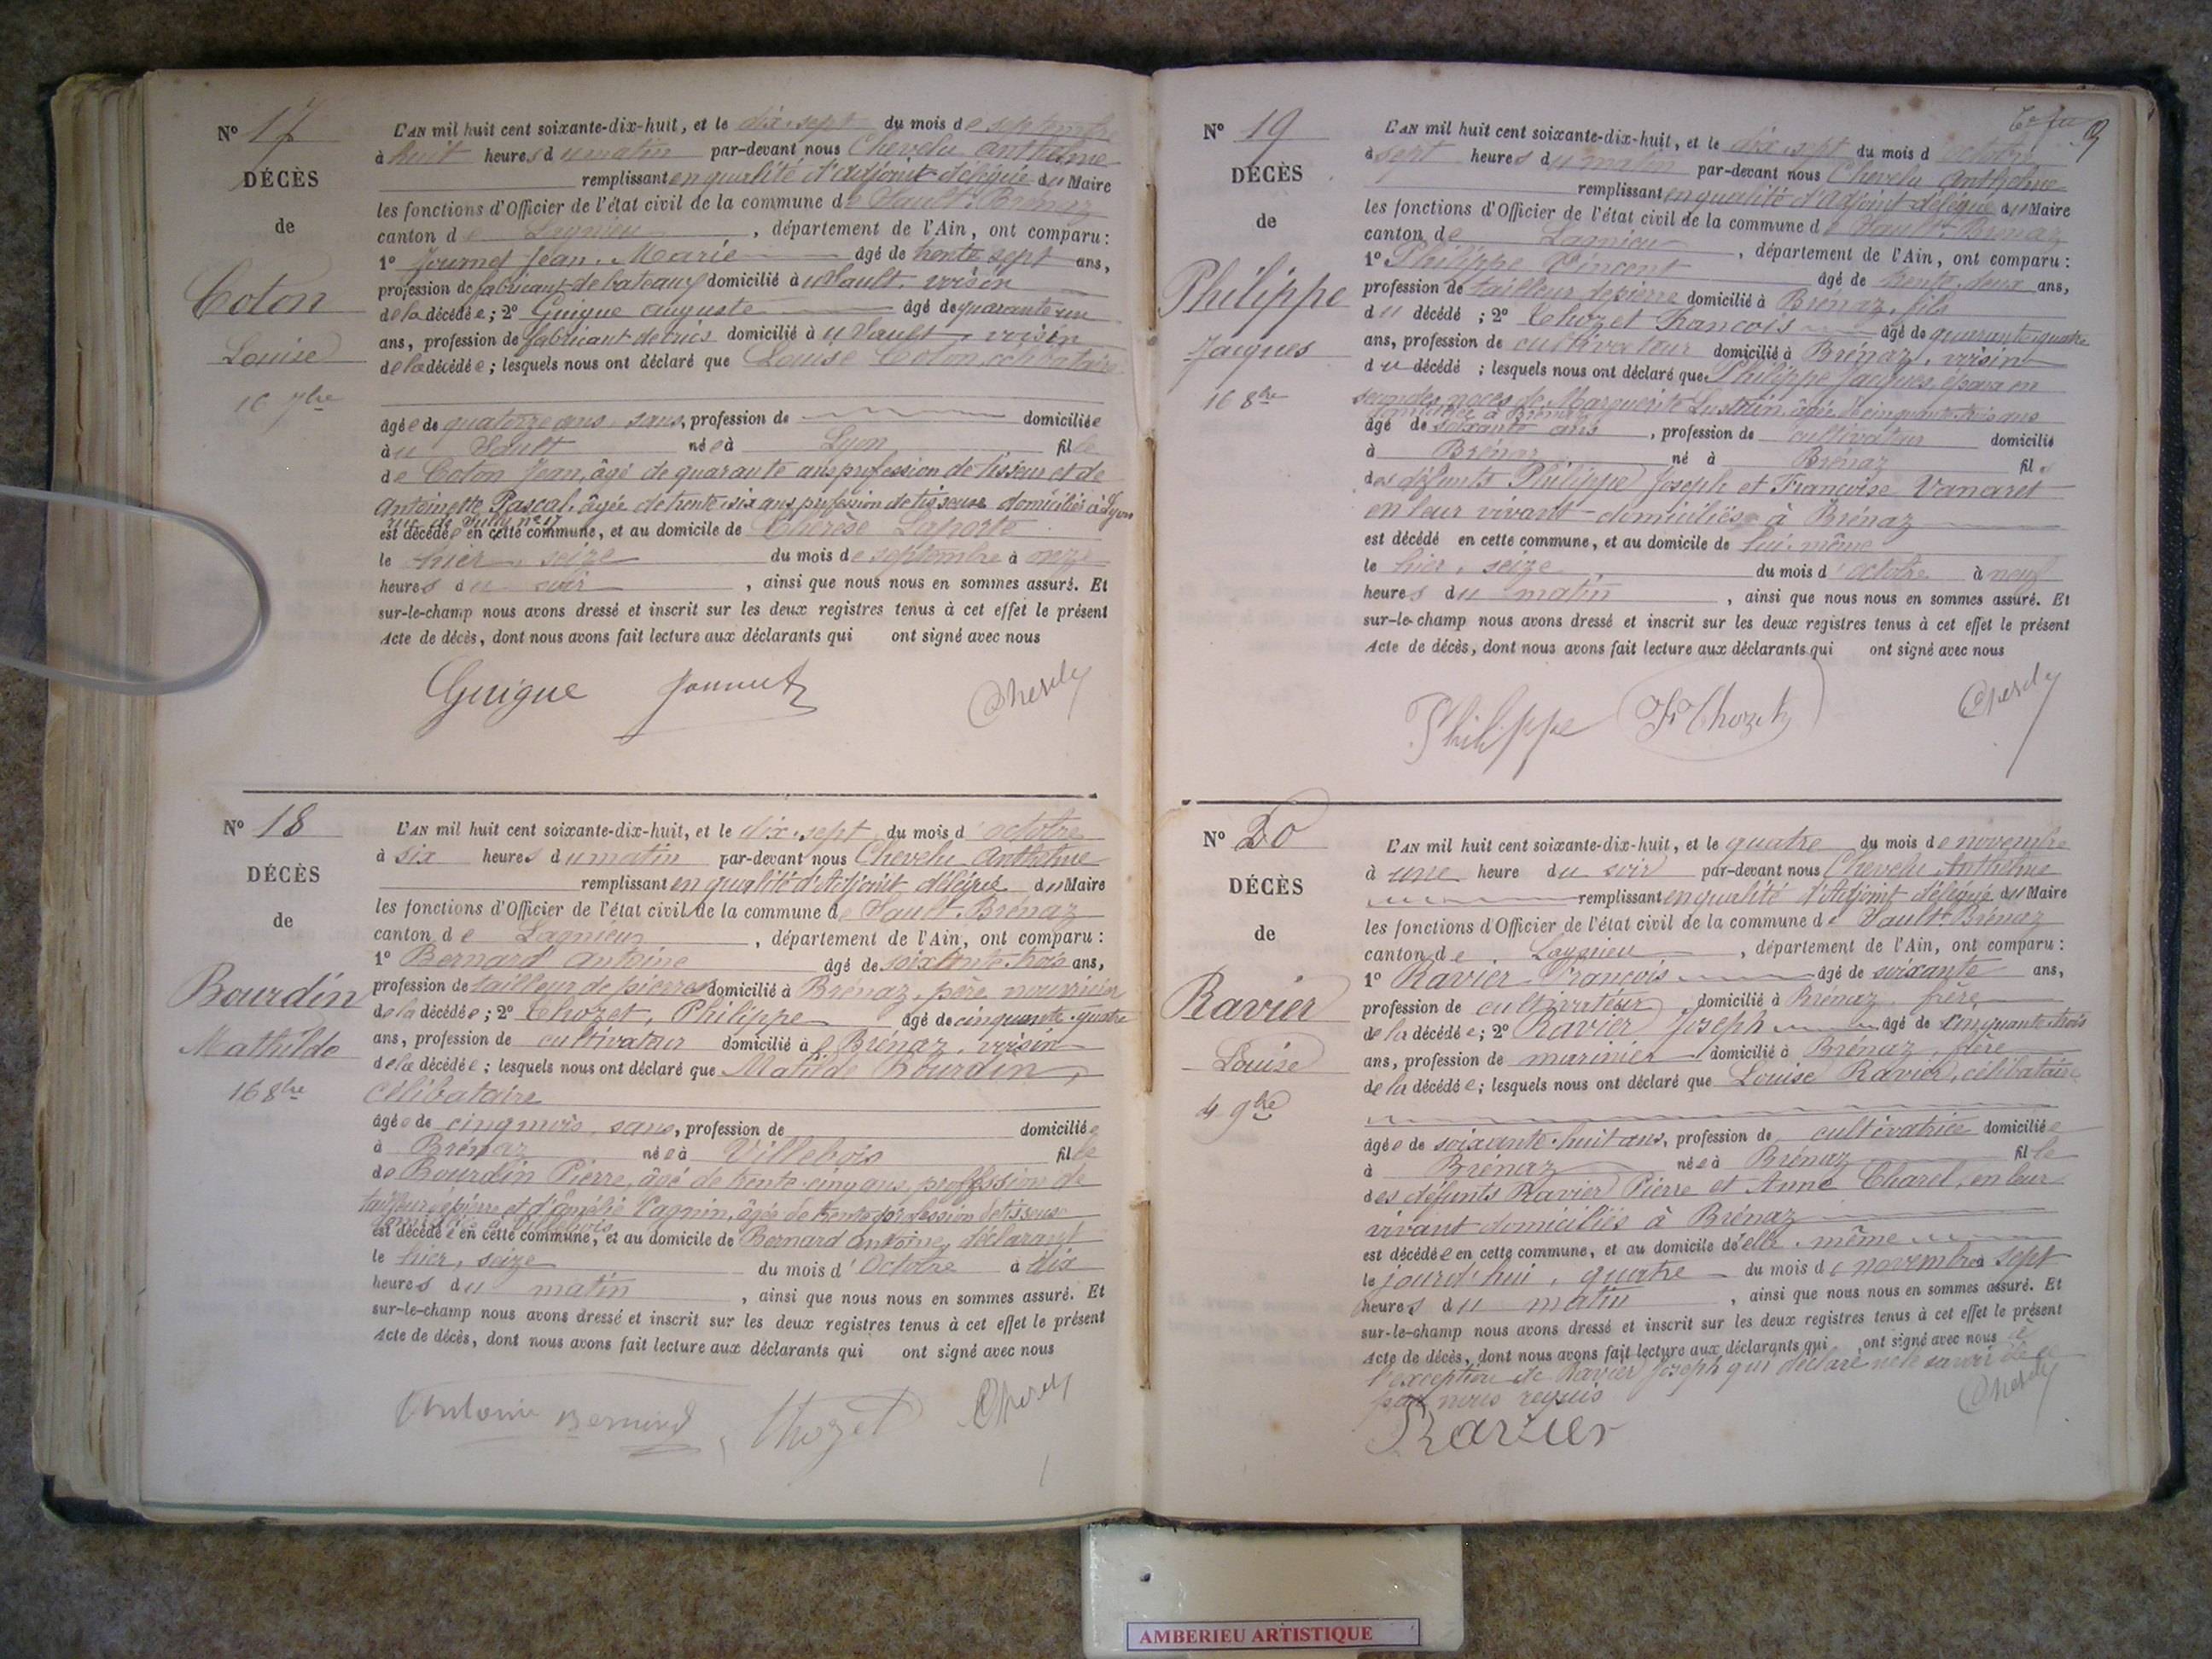 N° 17
DÉCÈS
de
Coton
Louise
16 7bre
L'AN mil huit cent soixante-dix-huit, et le dix-sept du mois de septembre
à huit heures du matin par-devant nous Chevelu Anthelme
remplissant en qualité d'adjoint délégué du Maire
les fonctions d'Officier de l'état civil de la commune de Sault-Brénaz
canton de Lagnieu, département de l'Ain, ont comparu :
1° Journet Jean-Marie âgé de trente sept ans,
profession de fabricant de bateaux domicilié à u Sault, voisin
de la décédée ; 2° Guigue auguste âgé de quarante un
ans, profession de fabricant de domicilié à u Sault, voisin
de la décédée ; lesquels nous ont déclaré que Louise Coton célibataire
âgée de quatorze ans, sans, profession de domiciliée
à u Sault née à Lyon fille
de Coton Jean, âgé de quarante ans profession de tisseur et de
Antoinette Pascal, âgée de trente-six ans profession de tisseuse domiciliés à Lyon
rue de n° 17
est décédée en cette commune, et au domicile de Thérèse Laporte
le hier, seize du mois de septembre à onze
heures du soir, ainsi que nous nous en sommes assuré. Et
sur-le-champ nous avons dressé et inscrit sur les deux registres tenus à cet effet le présent
Acte de décès, dont nous avons fait lecture aux déclarants qui ont signé avec nous
Guigue
N° 18
DÉCÈS
de
Bourdin
Mathilde
16 8bre
L'AN mil huit cent soixante-dix-huit, et le dix-sept du mois d'octobre
à six heures du matin par-devant nous Chevelu Anthelme
remplissant en qualité d'Adjoint délégué du Maire
les fonctions d'Officier de l'état civil de la commune de Sault-Brénaz
canton de Lagnieu, département de l'Ain, ont comparu :
1° Bernard Antoine âgé de soixante-trois ans,
profession de tailleur de pierres domicilié à Brénaz, père nourricier
de la décédée ; 2° Chozet, Philippe âgé de cinquante-quatre
ans, profession de cultivateur domicilié à Brénaz, voisin
de la décédée ; lesquels nous ont déclaré que Matilde Bourdin,
célibataire
âgée de cinq mois, sans, profession de domiciliée
à Brénaz née à Villebois fille
de Bourdin Pierre, âgé de trente-cinq ans, proffession de
tailleur de pierre et d'Amélie Pagnin, âgée de trente profession de tisseuse
domiciliés à Villebois
est décédée en cette commune, et au domicile de Bernard Antoine, déclarant
le hier, seize du mois d'Octobre à dix
heures du matin, ainsi que nous nous en sommes assuré. Et
sur-le-champ nous avons dressé et inscrit sur les deux registres tenus à cet effet le présent
Acte de décès, dont nous avons fait lecture aux déclarants qui ont signé avec nous
Antoine Bernard Chozet
9
N° 19
DÉCÈS
de
Philippe
Jacques
16 8bre
L'AN mil huit cent soixante-dix-huit, et le dix-sept du mois d'octobre
à sept heures du matin par-devant nous Chevelu Anthelme
remplissant en qualité d'adjoint délégué du Maire
les fonctions d'Officier de l'état civil de la commune de Sault-Brénaz
canton de Lagnieu, département de l'Ain, ont comparu :
1° Philippe Vincent âgé de trente-deux ans,
profession de tailleur de pierre domicilié à Brénaz, fils
du décédé ; 2° Chozet François âgé de quarante-quatre
ans, profession de cultivateur domicilié à Brénaz, voisin
du décédé ; lesquels nous ont déclaré que Philippe Jacques, époux en
secondes noces de Marguerite âgée de cinquante-trois ans
domiciliée à Brénaz
âgé de soixante ans, profession de cultivateur domicilié
à Brénaz né à Brénaz fils
des défunts Philippe Joseph et Françoise Vanaret
en leur vivant domiciliés à Brénaz
est décédé en cette commune, et au domicile de lui-même
le hier, seize du mois d'octobre à neuf
heures du matin, ainsi que nous nous en sommes assuré. Et
sur-le-champ nous avons dressé et inscrit sur les deux registres tenus à cet effet le présent
Acte de décès, dont nous avons fait lecture aux déclarants qui ont signé avec nous
Philippe Fs Chozet
N° 20
DÉCÈS
de
Ravier
Louise
4 9bre
L'AN mil huit cent soixante-dix-huit, et le quatre du mois de novembre
à une heure du soir par-devant nous Chevelu Anthelme
remplissant en qualité d'Adjoint délégué du Maire
les fonctions d'Officier de l'état civil de la commune de Sault-Brénaz
canton de Lagnieu, département de l'Ain, ont comparu :
1° Ravier François âgé de soixante ans,
profession de cultivateur domicilié à Brénaz, frère
de la décédée ; 2° Ravier Joseph âgé de cinquante-trois
ans, profession de marinier domicilié à Brénaz, frère
de la décédée ; lesquels nous ont déclaré que Louise Ravier, célibataire
âgée de soixante-huit ans, profession de cultivatrice domiciliée
à Brénaz née à Brénaz fille
des défunts Ravier Pierre et Anne Charel, en leur
vivant domiciliés à Brénaz
est décédée en cette commune, et au domicile d'elle-même
le jourd'hui, quatre du mois de novembre à sept
heures du matin, ainsi que nous nous en sommes assuré. Et
sur-le-champ nous avons dressé et inscrit sur les deux registres tenus à cet effet le présent
Acte de décès, dont nous avons fait lecture aux déclarants qui ont signé avec nous à
l'exception de Ravier Joseph qui déclare ne le savoir de ce
par nous requis
Ravier
AMBERIEU ARTISTIQUE